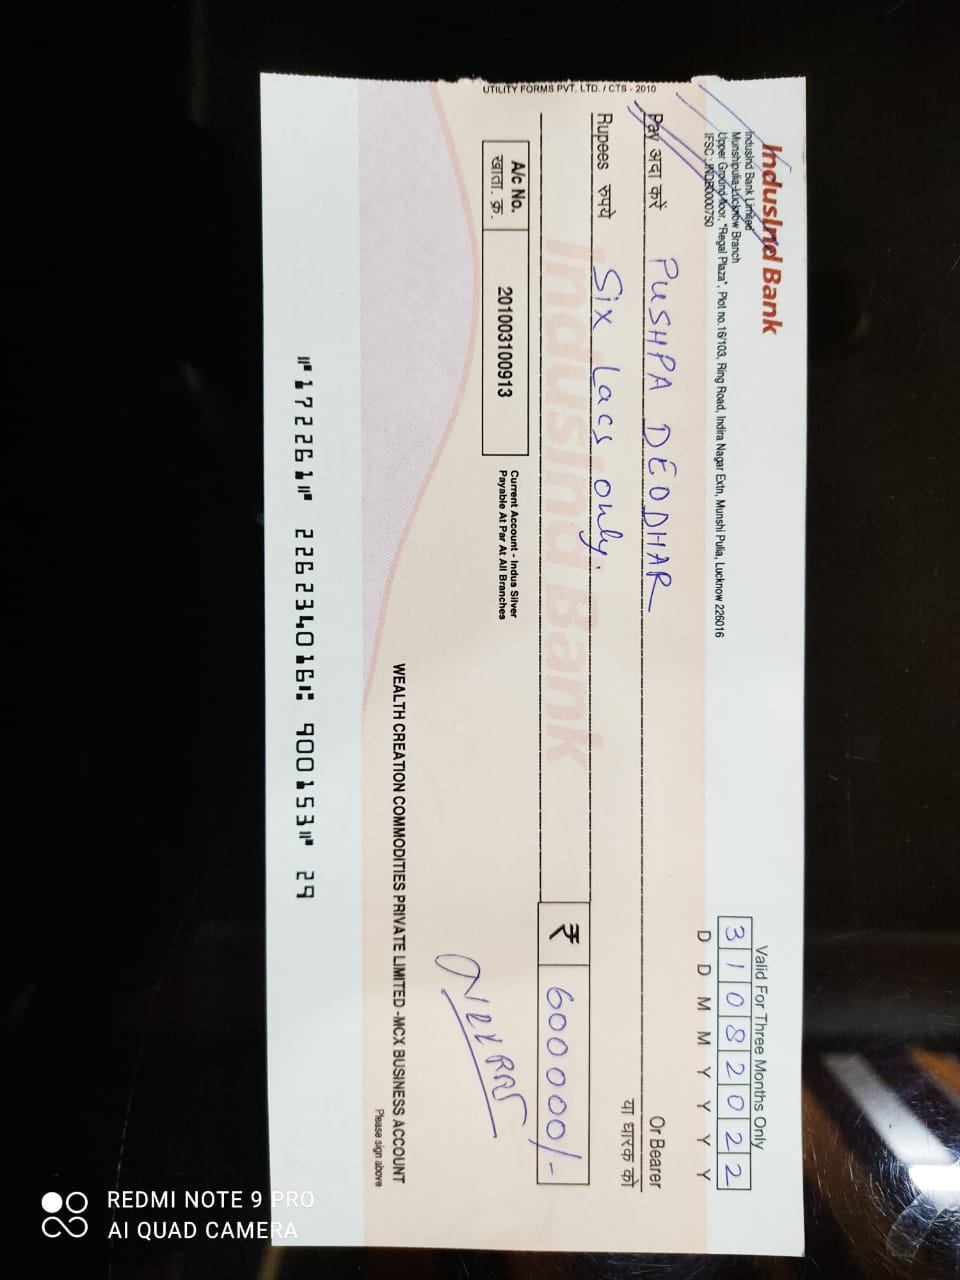 IndusInd Bank
IndusInd Bank Limited
Munshipulia-Lucknow Branch
Upper Ground floor, "Regal Plaza", Plot no.16/103, Ring Road, Indira Nagar Extn, Munshi Pulia, Lucknow 226016
IFSC : INDB0000750
Valid For Three Months Only
3 1 0 8 2 0 2 2
D D M M Y Y Y Y
Pay अदा करें PUSHPA DEODHAR Or Bearer
या धारक को
Rupees रुपये Six Lacs only.
₹ 600000/-
IndusInd Bank
A/c No.
खाता. क्र.
201003100913
Current Account - Indus Silver
Payable At Par At All Branches
WEALTH CREATION COMMODITIES PRIVATE LIMITED -MCX BUSINESS ACCOUNT
Please sign above
UTILITY FORMS PVT. LTD. / CTS - 2010
⑈172261⑈ 226234016⑆ 900153⑈ 29
REDMI NOTE 9 PRO
AI QUAD CAMERA